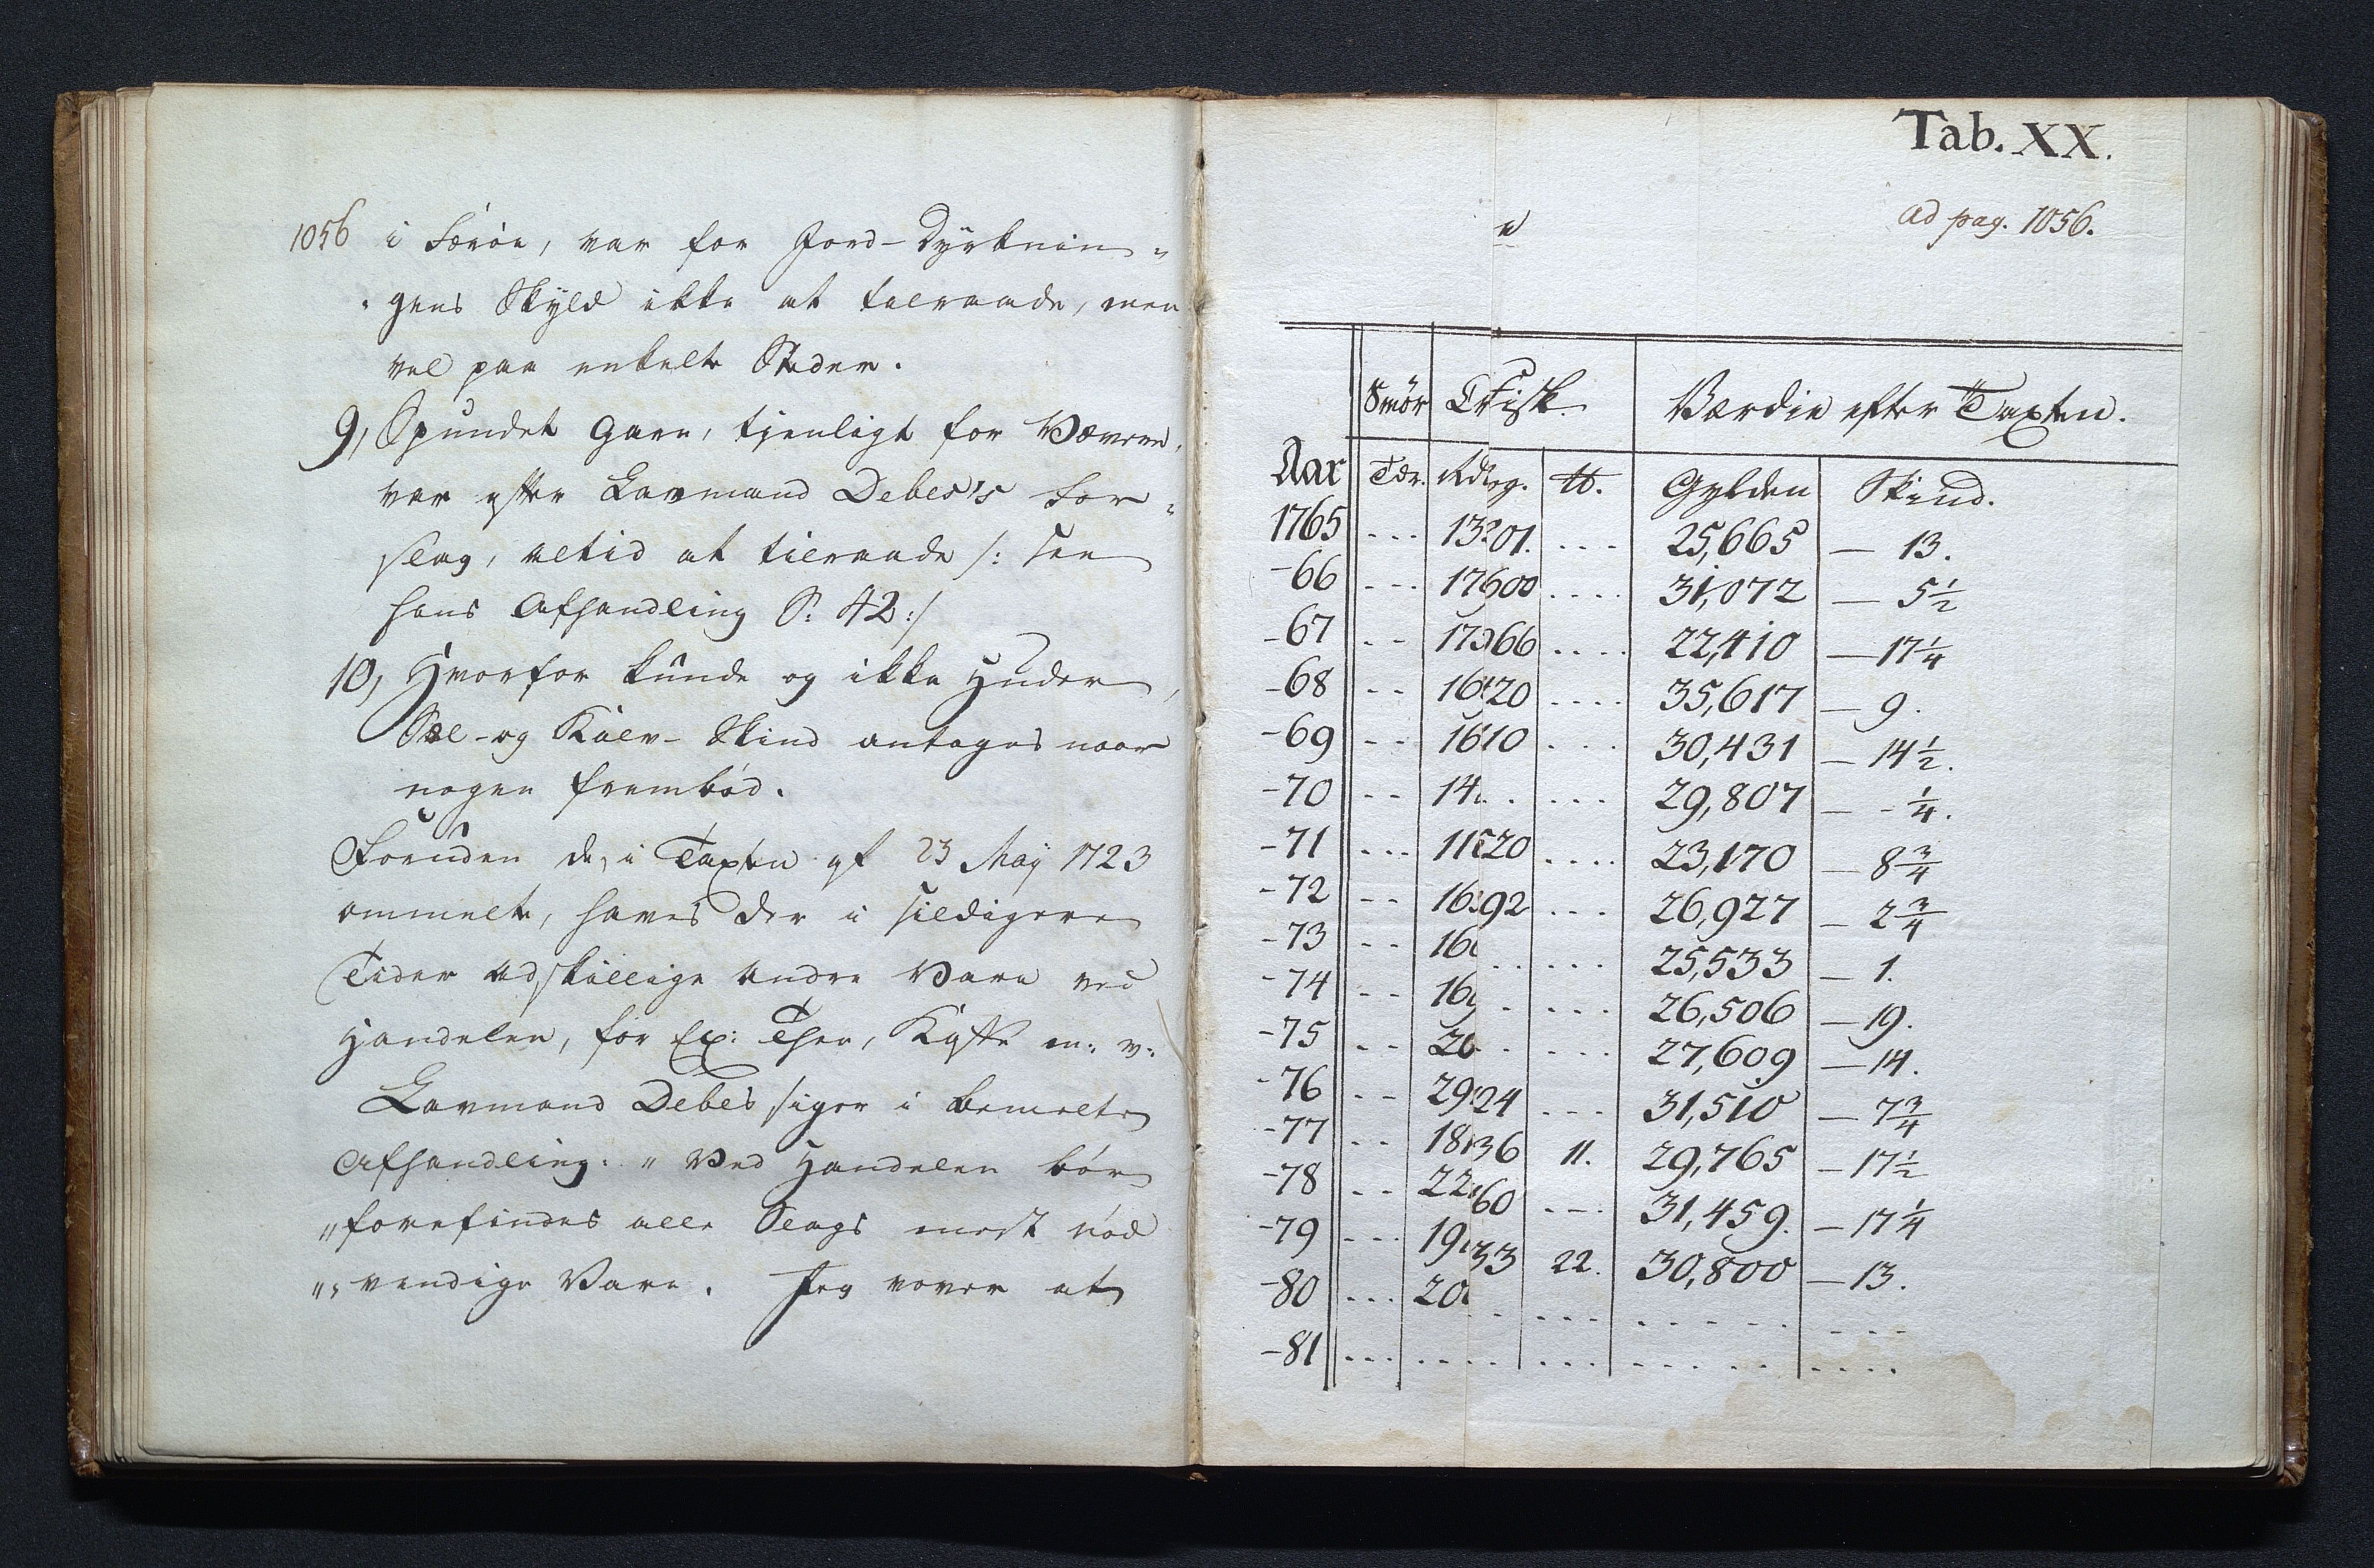 1056 i Færöe, var for Jord-Dyrknin„
„gens Skyld ikke at tilraade, men
vel paa enkelte Steder.
9, Spundet Garn, tjenligt for Vævere,
var efter Lavmand Debes's For„
slag, altid at tilraade /: see
hans Afhandling S: 42:/
10, Hvorfor kunde og ikke Huder,
Sæl- og Kalv- Skind antages naar
nogen frembød.
Foruden de, i Taxten af 23 Maÿ 1723
ommelte, haves der i sildigere
Tider adskillige andre Vare ved
Handelen, for Ex: Thee, Kaffe m: v:
Lavmand Debes siger i bemelte
Afhandling: „Ved Handelen bør
„forefindes alle Slags mest nød
„vendige Vare. Jeg vover at
Tab. XX.
ad pag. 1056.
Smör Fisk Værdie efter Taxten.
Aar Tdr. og. tt. Gylden Skind.
1765 --- 01. --- 25,665 — 13.
-66 --- 600 .... 31,072 — 5½
-67 -- 66 .... 22,410 — 17¼
-68 -- 20 .... 35,617 — 9.
-69 -- 10 ... 30,431 — 14½.
-70 -- ... 29,807 — - ¼.
-71 --- 20 .... 23,170 — 8¾
-72 -- 92 ... 26,927 — 2¾
-73 -- ... 25,533 — 1.
-74 -- ... 26,506 — 19.
-75 -- ... 27,609 — 14.
-76 -- 24 --- 31,510 — 7¾
-77 -- 36 11. 29,765 — 17½
-78 -- 60 --- 31,459. — 17¼
-79 --- 33 22. 30,800 — 13.
-80 ---
-81 ...